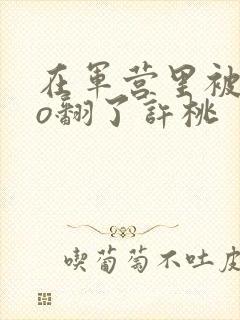 在軍营里被
o翻了許桃
喫葡萄不吐皮